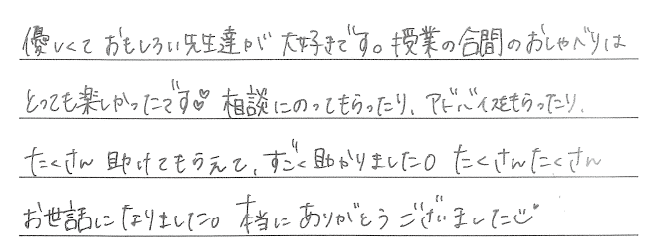 優しくておもしろい先生達が大好きです。授業の合間のおしゃべりは
とっても楽しかったです♡ 相談にのってもらったり、アドバイスをもらったり、
たくさん助けてもらえて、すごく助かりました。たくさんたくさん
お世話になりました。本当にありがとうございました